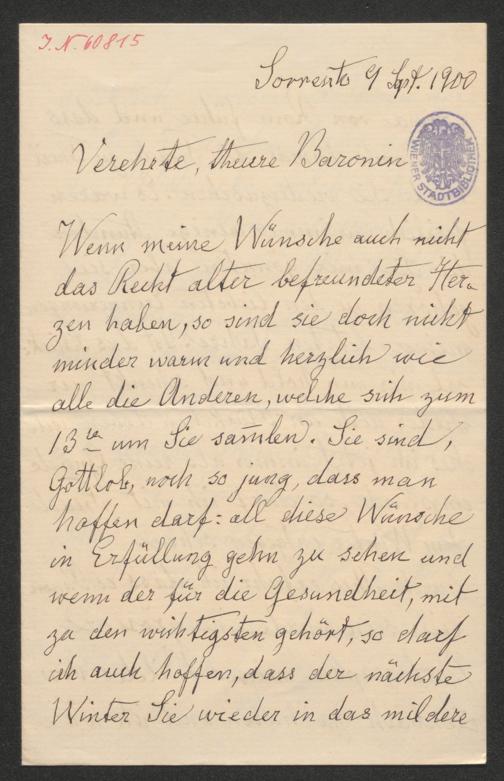 J. N. 60815
Sorrento 9 Sept. 1900
Verehrte, theure Baronin
WIENER STADTBIBLIOTHEK
Wenn meine Wünsche auch nicht
das Recht alter befreundeter Her-
zen haben, so sind sie doch nicht
minder warm und herzlich wie
alle die Anderen, welche sich zum
13te um Sie sam̄len. Sie sind,
Gottlob, noch so jung, dass man
hoffen darf: all diese Wünsche
in Erfüllung gehn zu sehen und
wenn der für die Gesundheit, mit
zu den wichtigsten gehört, so darf
ich auch hoffen, dass der nächste
Winter Sie wieder in das mildere